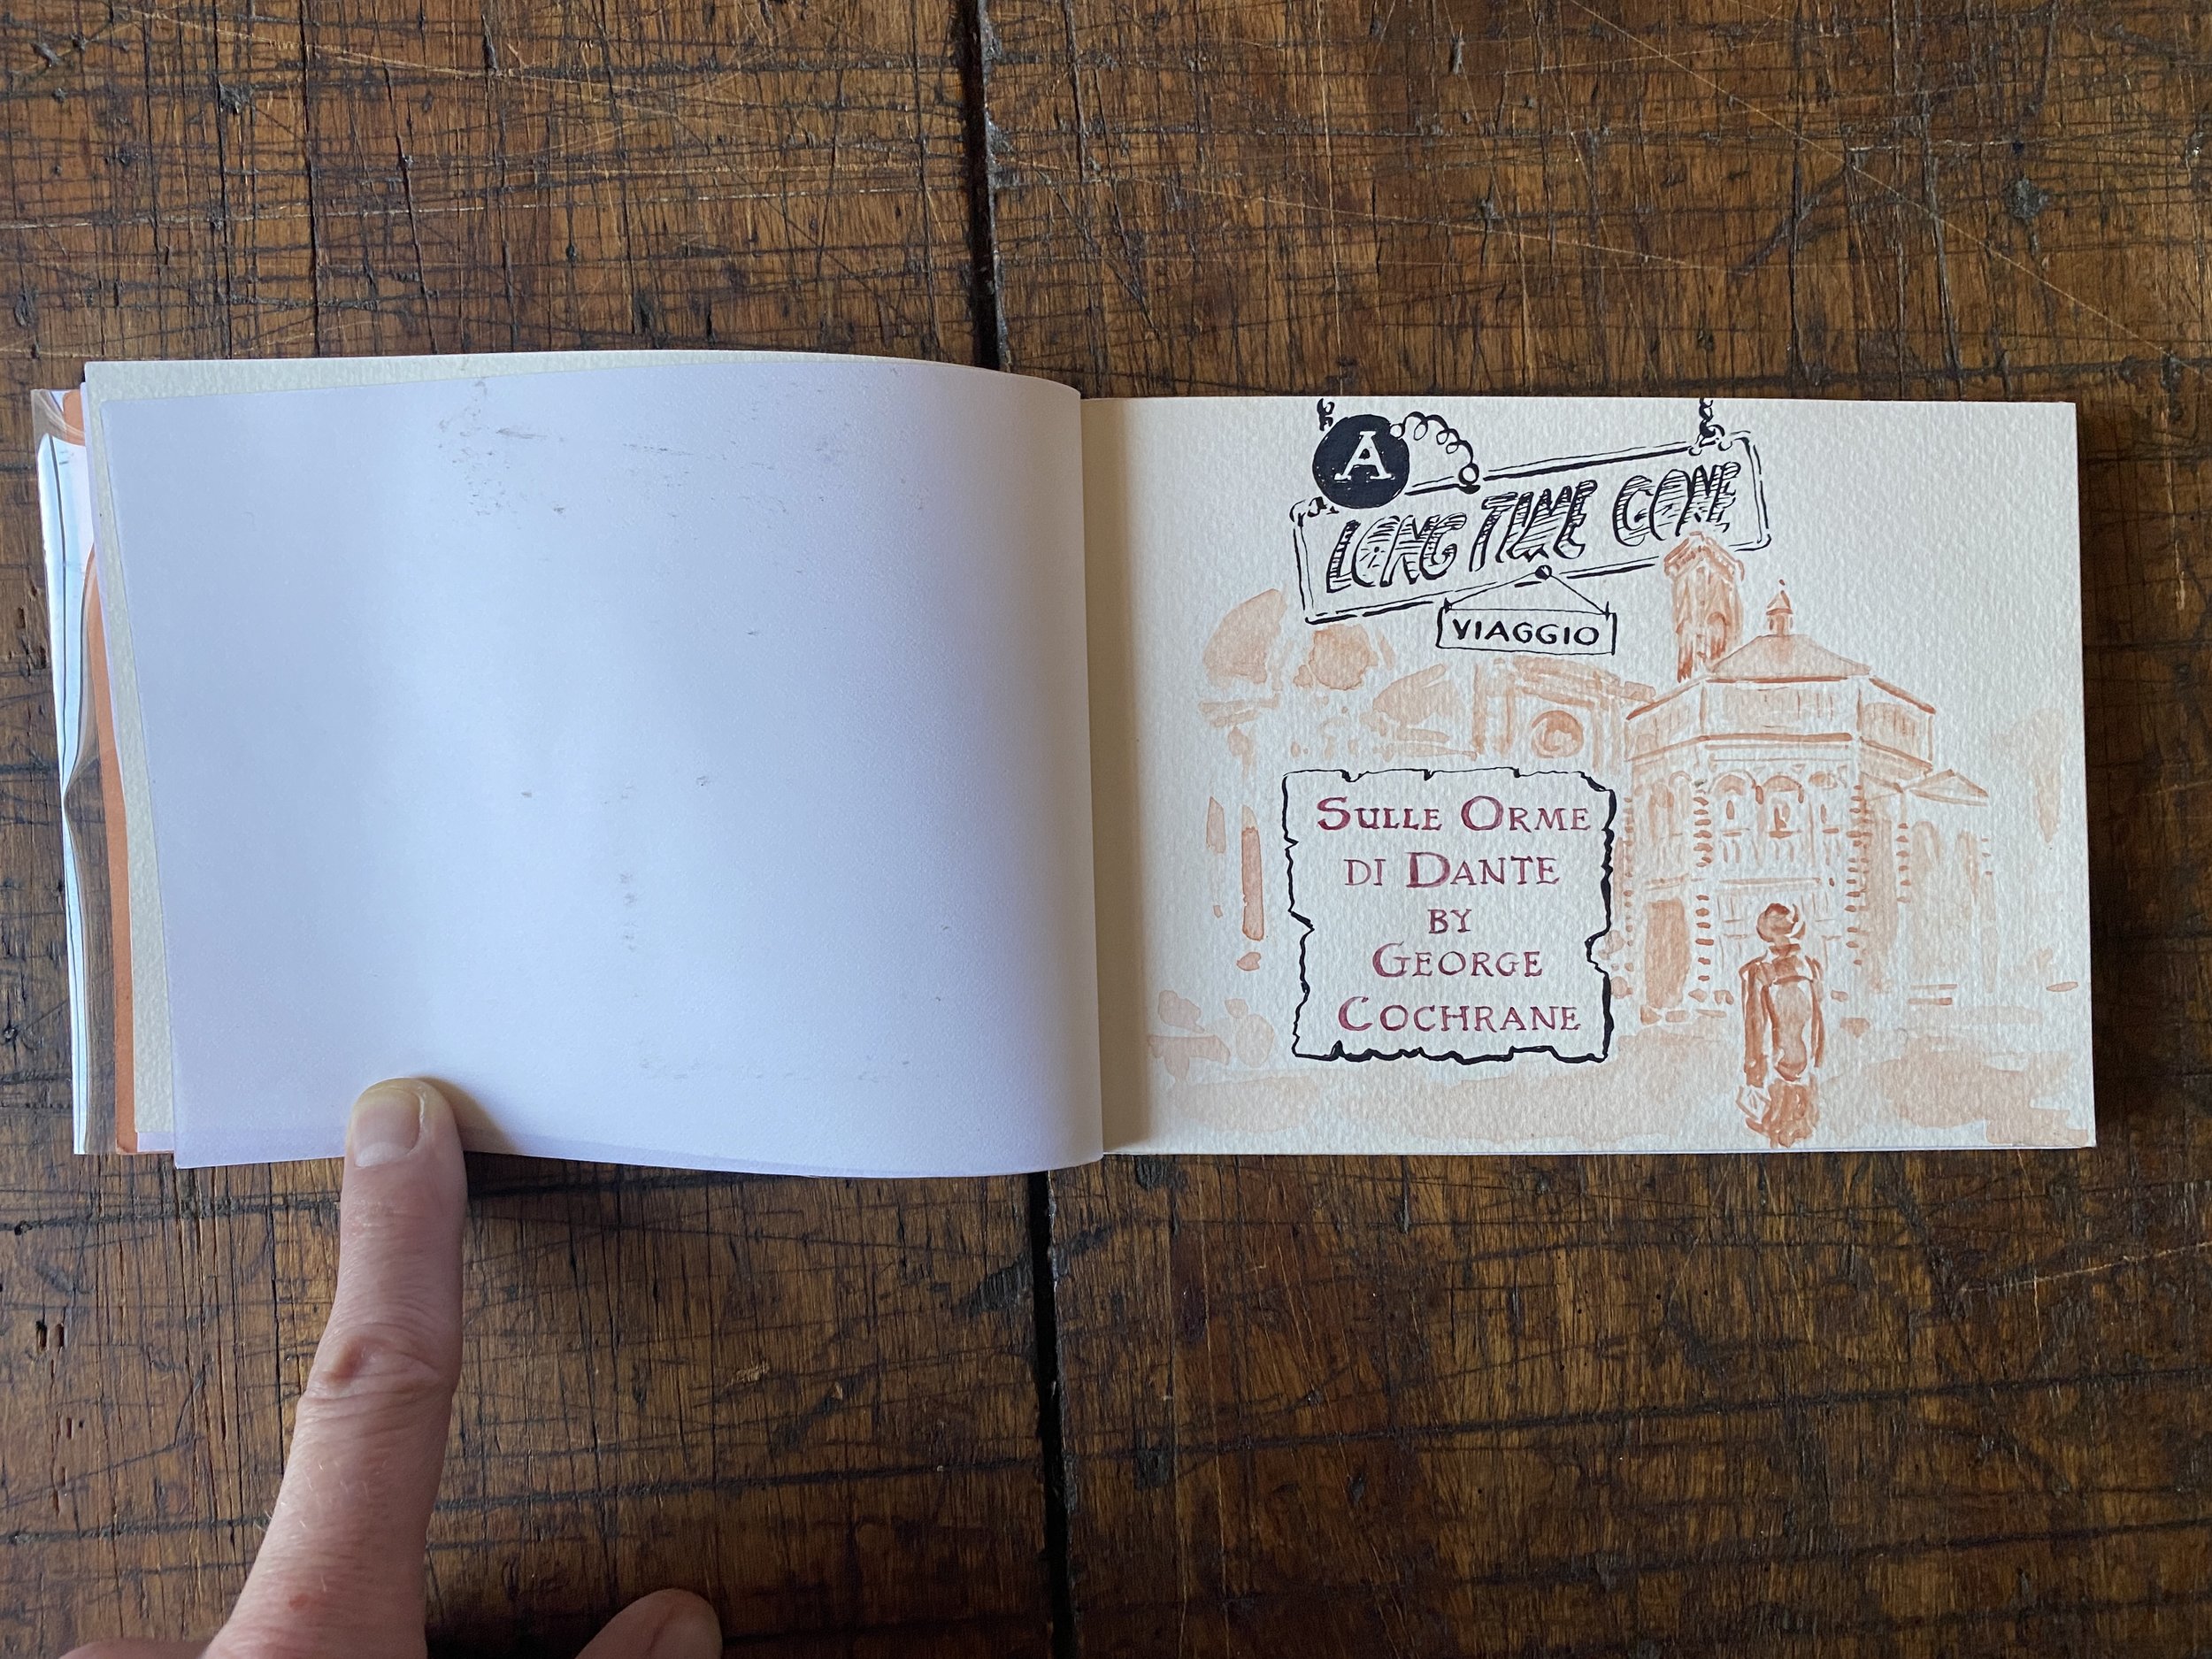 A
LONG TIME GONE
VIAGGIO
SULLE ORME
DI DANTE
BY
GEORGE
COCHRANE